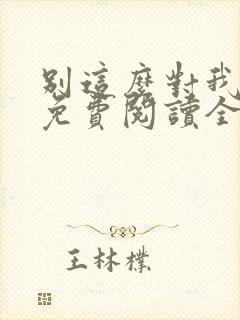 別這麼對我
免費閱讀全
王林檏